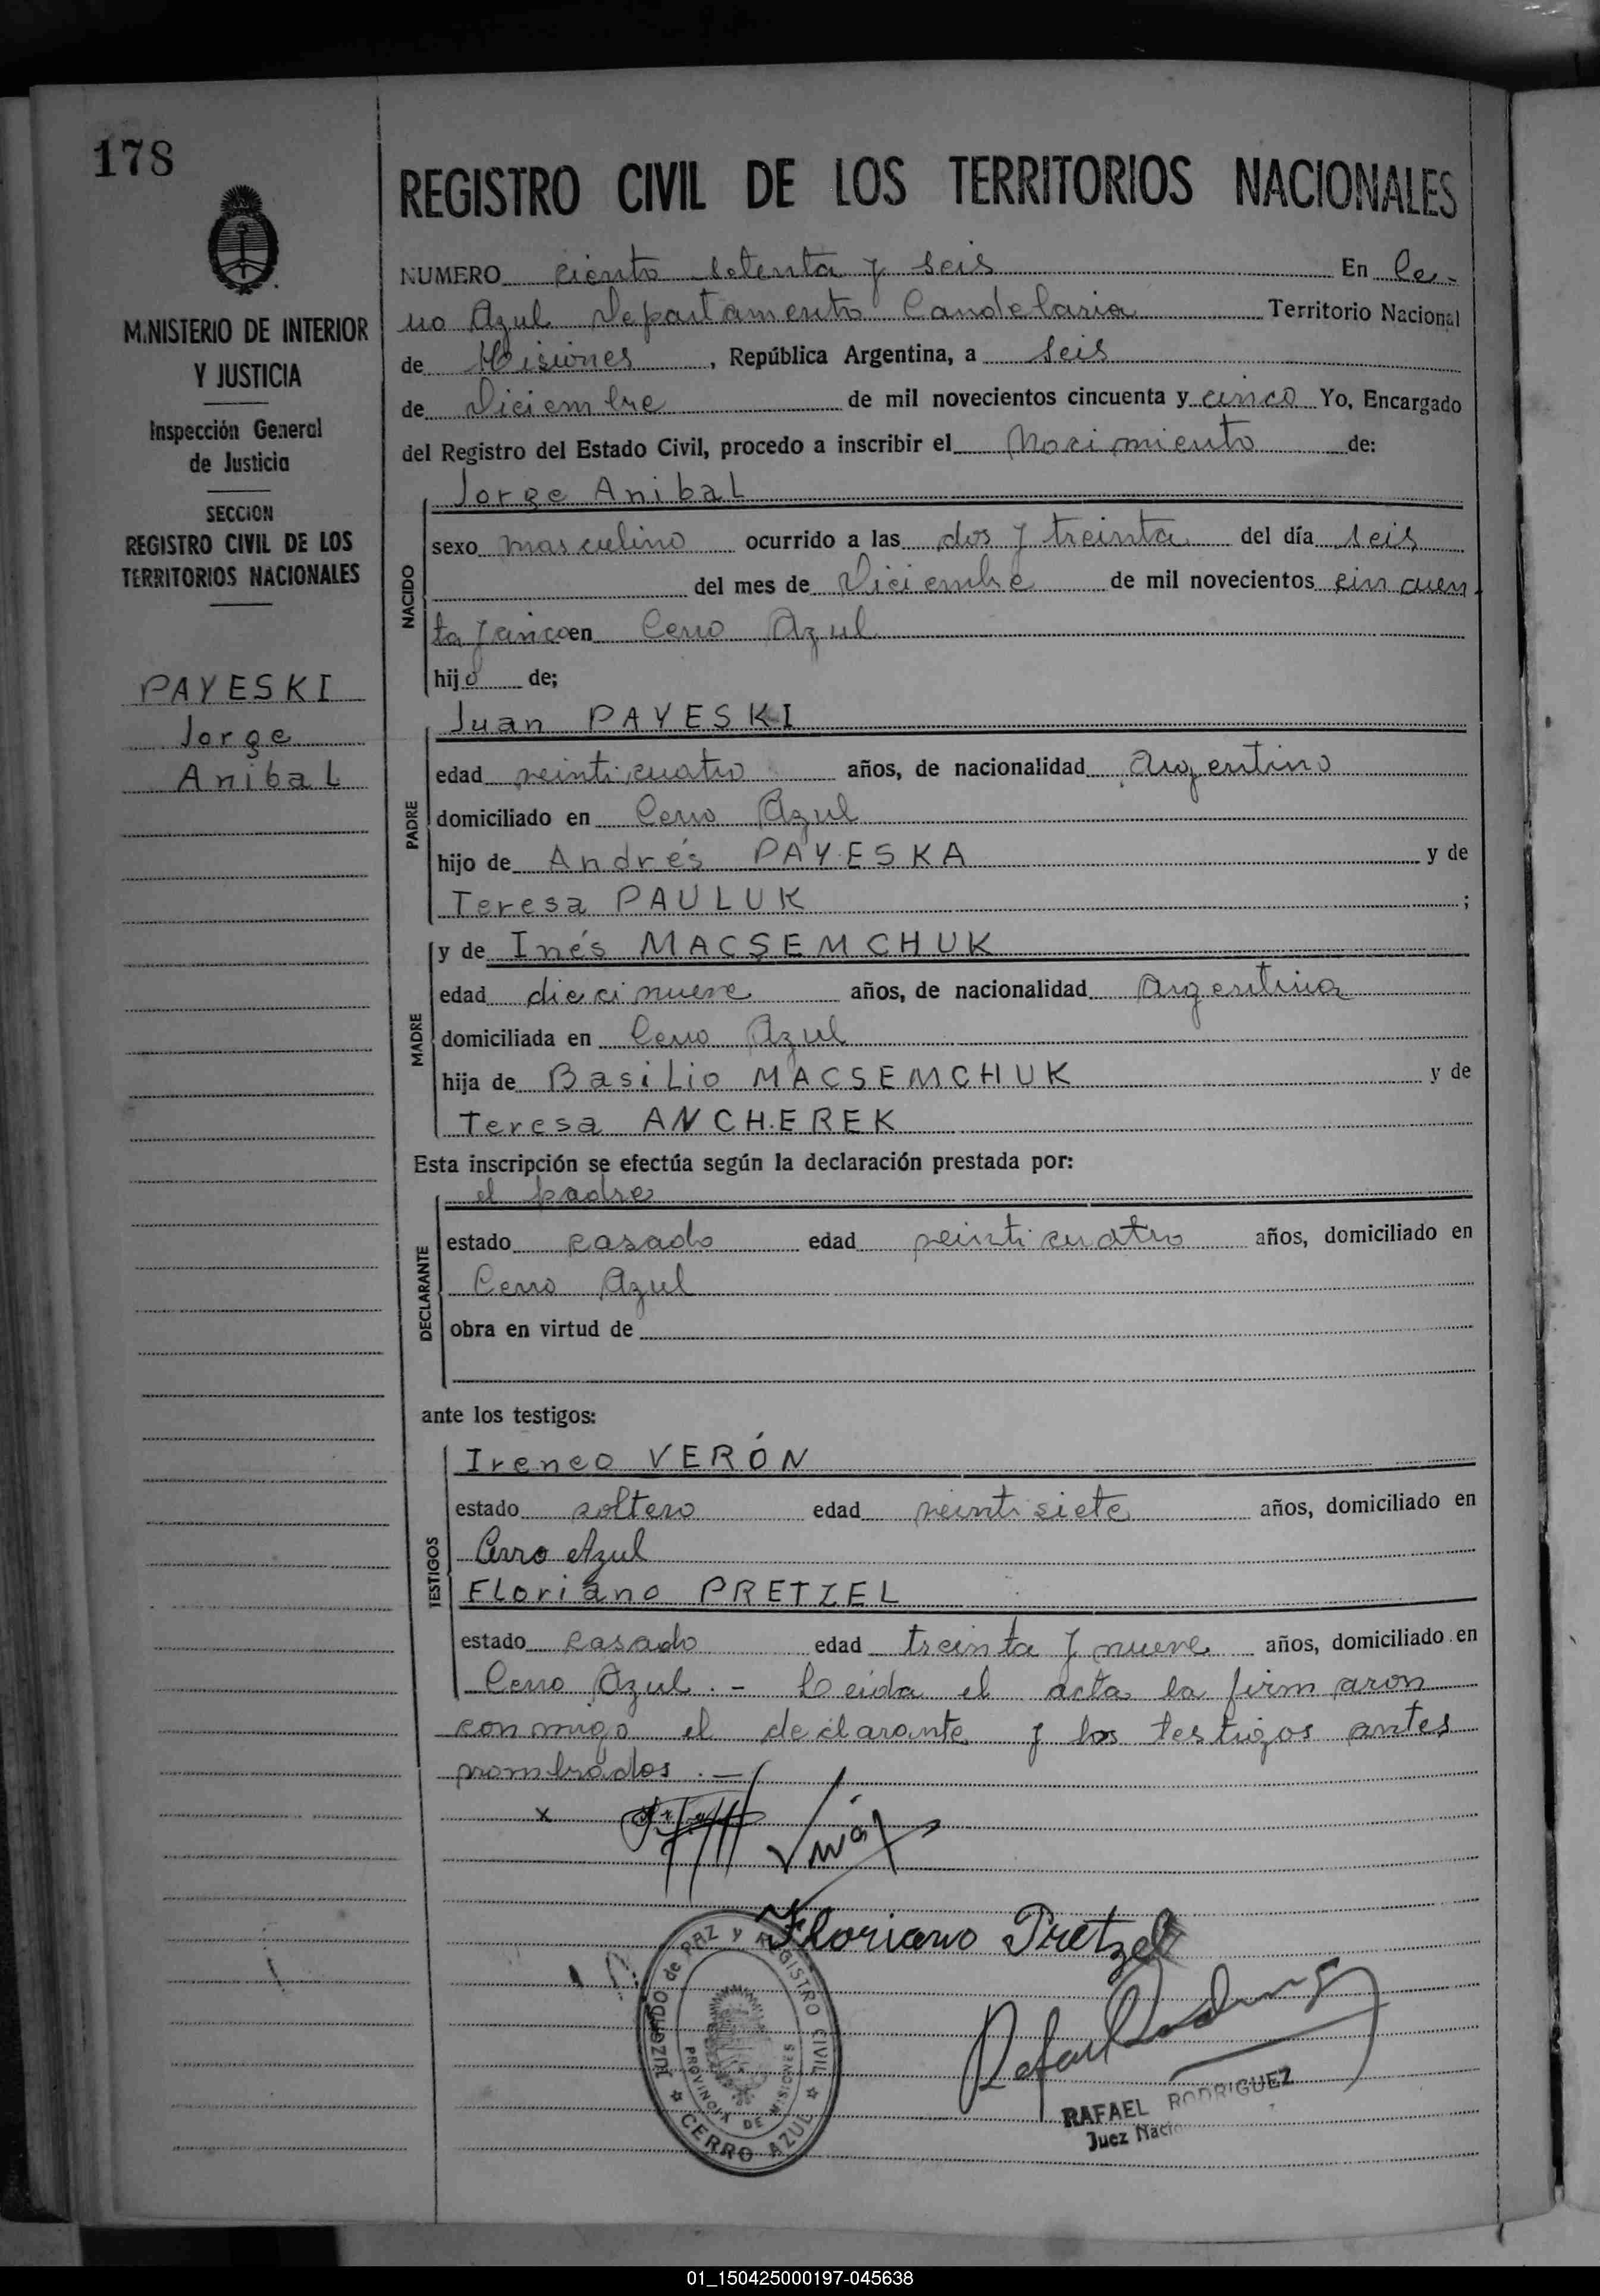 178
MINISTERIO DE INTERIOR
Y JUSTICIA
Inspección General
de Justicia
SECCION
REGISTRO CIVIL DE LOS
TERRITORIOS NACIONALES
PAYESKI
Jorge
Anibal
REGISTRO CIVIL DE LOS TERRITORIOS NACIONALES
NUMERO ciento setenta y seis En Ce-
rro Azul Departamento Candelaria Territorio Nacional
de Misiones, República Argentina, a seis
de Diciembre de mil novecientos cincuenta y cinco Yo, Encargado
del Registro del Estado Civil, procedo a inscribir el Nacimiento de:
NACIDO
Jorge Anibal
sexo masculino ocurrido a las dos y treinta del día seis
del mes de Diciembre de mil novecientos cincuen
ta y cinco en Cerro Azul
hijo de;
PADRE
Juan PAYESKI
edad veinticuatro años, de nacionalidad Argentino
domiciliado en Cerro Azul
hijo de Andrés PAYESKA y de
Teresa PAULUK ;
MADRE
y de Inés MACSEMCHUK
edad diecinueve años, de nacionalidad Argentina
domiciliada en Cerro Azul
hija de Basilio MACSEMCHUK y de
Teresa ANCHEREK
Esta inscripción se efectúa según la declaración prestada por:
DECLARANTE
el padre
estado casado edad veinticuatro años, domiciliado en
Cerro Azul
obra en virtud de
ante los testigos:
TESTIGOS
Ireneo VERÓN
estado soltero edad veintisiete años, domiciliado en
Cerro Azul
Floriano PRETZEL
estado casado edad treinta y nueve años, domiciliado en
Cerro Azul.- Leída el acta la firmaron
conmigo el declarante y los testigos antes
nombrados.-
x
Floriano Pretzel
JUZGADO de PAZ y REGISTRO CIVIL
PROVINCIA DE MISIONES
CERRO AZUL
Rafael Rodriguez
RAFAEL RODRIGUEZ
Juez
01_150425000197-045638